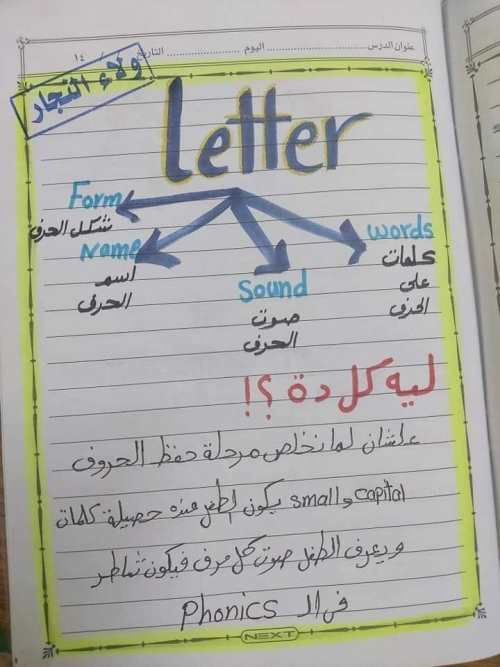 عنوان الدرس ........ اليوم ........ التاريخ / / ١٤
ولاء النجار
Letter
Form
شكل الحرف
Name
اسم
الحرف
Sound
صوت
الحرف
words
كلمات
على
الحرف
ليه كل دة ؟!
علشان لما نخلص مرحلة حفظ الحروف
capital و small يكون الطفل عنده حصيلة كلمات
ويعرف الطفل صوت كل حرف فيكون شاطر
في الـ Phonics
NEXT